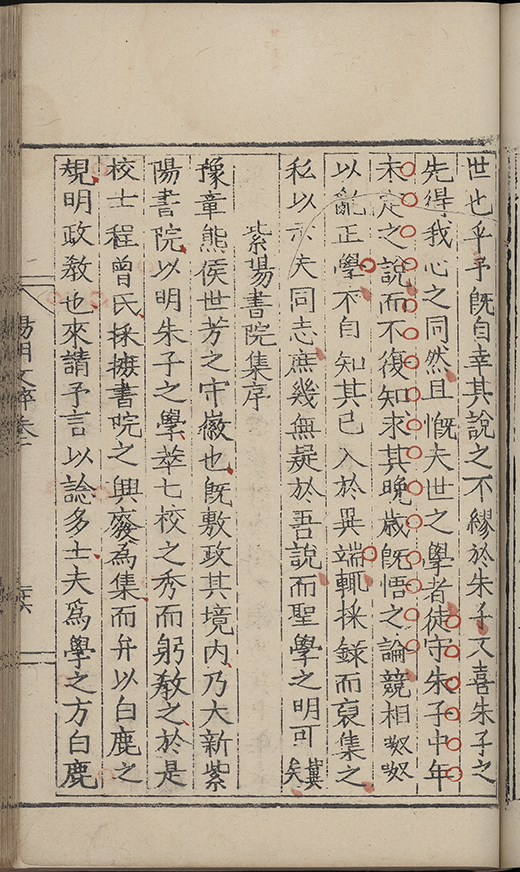 世也乎予既自幸其說之不繆於朱子又喜朱子之
先得我心之同然且慨夫世之學者徒守朱子中年
未定之說而不復知求其晚歲既悟之論競相呶呶
以亂正學不自知其已入於異端輒採錄而裒集之
私以示夫同志庶幾無疑於吾說而聖學之明可冀矣
紫陽書院集序
豫章熊侯世芳之守徽也既敷政其境內乃大新紫
陽書院以明朱子之學萃七校之秀而躬教之於是
校士程曾氏採摭書院之興廢為集而弁以白鹿之
規明政教也來請予言以諗多士夫為學之方白鹿
陽明文粹卷二